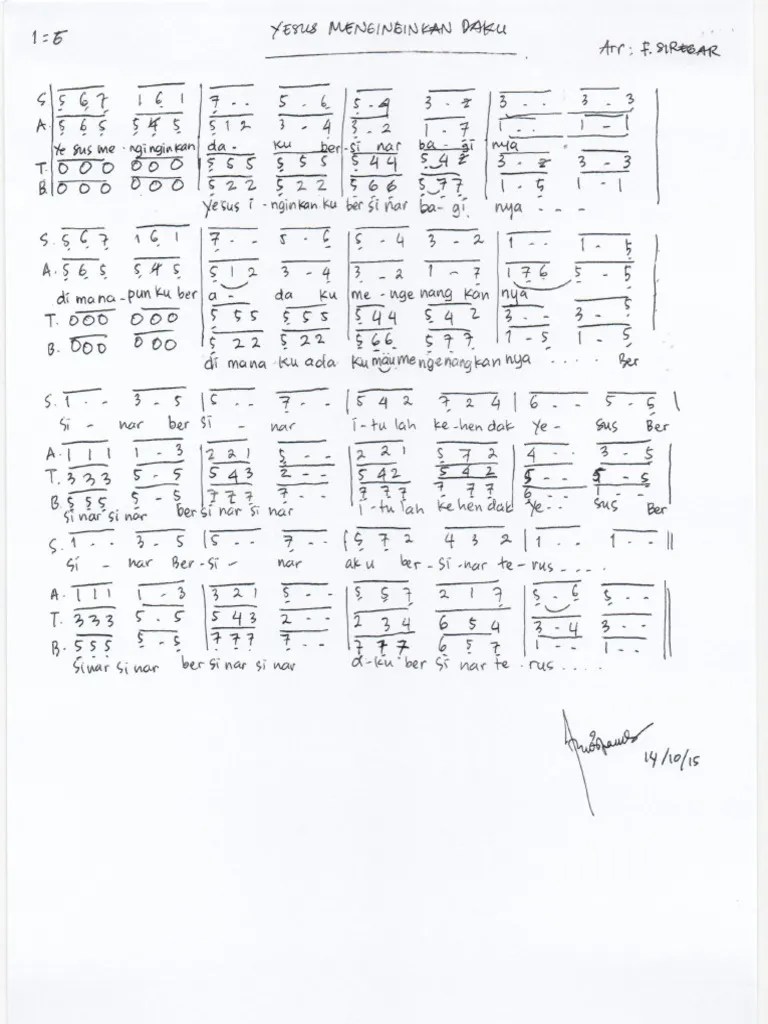 YESUS MENGINGINKAN DAKU
1=E
Arr : F. SIREGAR
S 5 6 7 1 6 1 | 7 . . 5 . 6 | 5 . 4 3 . 2 | 3 . . 3 . 3
A. 5 6 5 5 4 5 | 5 1 2 3 - 4 | 3 . 2 1 . 7 | 1 . . 1 - 1
Ye sus me - nginginkan da - ku ber - si nar ba - gi nya
T. 0 0 0 0 0 0 | 5 5 5 5 5 5 | 5 4 4 5 4 2 | 3 - 2 3 - 3
B. 0 0 0 0 0 0 | 5 2 2 5 2 2 | 5 6 6 5 7 7 | 1 - 5 1 - 1
Yesus i - nginkan ku ber sinar ba - gi nya . . .
S. 5 6 7 1 6 1 | 7 - - 5 - 6 | 5 - 4 3 - 2 | 1 - - 1 - 5
A. 5 6 5 5 4 5 | 5 1 2 3 - 4 | 3 - 2 1 - 7 | 1 7 6 5 - 5
di mana - pun ku ber a - da ku me - nge nang kan nya
T. 0 0 0 0 0 0 | 5 5 5 5 5 5 | 5 4 4 5 4 2 | 3 - - 3 - 5
B. 0 0 0 0 0 0 | 5 2 2 5 2 2 | 5 6 6 5 7 7 | 1 - 5 1 - 5
di mana ku ada ku mau mengenangkan nya . . . . . Ber
S. 1 - - 3 - 5 | 5 - - 7 - - | 5 4 2 7 2 4 | 6 - - 5 - 5 |
Si - nar ber si - nar i - tu lah ke - hen dak Ye - sus Ber
A. 1 1 1 1 - 3 | 2 2 1 5 - - | 2 2 1 5 7 2 | 4 - - 3 - 5
T. 3 3 3 5 - 5 | 5 4 3 2 - - | 5 4 2 5 4 2 | 5 - - 5 - 5
B. 5 5 5 5 - 5 | 7 7 7 7 - - | 7 7 7 7 7 7 | 6 - - 1 - -
Sinar sinar ber sinar sinar i - tu lah ke hendak Ye . . Sus Ber
S. 1 - - 3 - 5 | 5 - - 7 - - | 5 7 2 4 3 2 | 1 - - 1 - - ||
Si - nar Ber - Si - nar aku ber - si - nar te - rus - . . . .
A. 1 1 1 1 - 3 | 3 2 1 5 - - | 5 5 7 2 1 7 | 5 - 6 5 - -
T. 3 3 3 5 . 5 | 5 4 3 2 - - | 2 3 4 6 5 4 | 3 - 4 3 - -
B. 5 5 5 5 - 5 | 7 7 7 7 - - | 7 7 7 6 5 7 | 1 - - 1 - -
Sinar sinar ber sinar sinar a - ku ber si nar te . rus . . . .
14/10/15